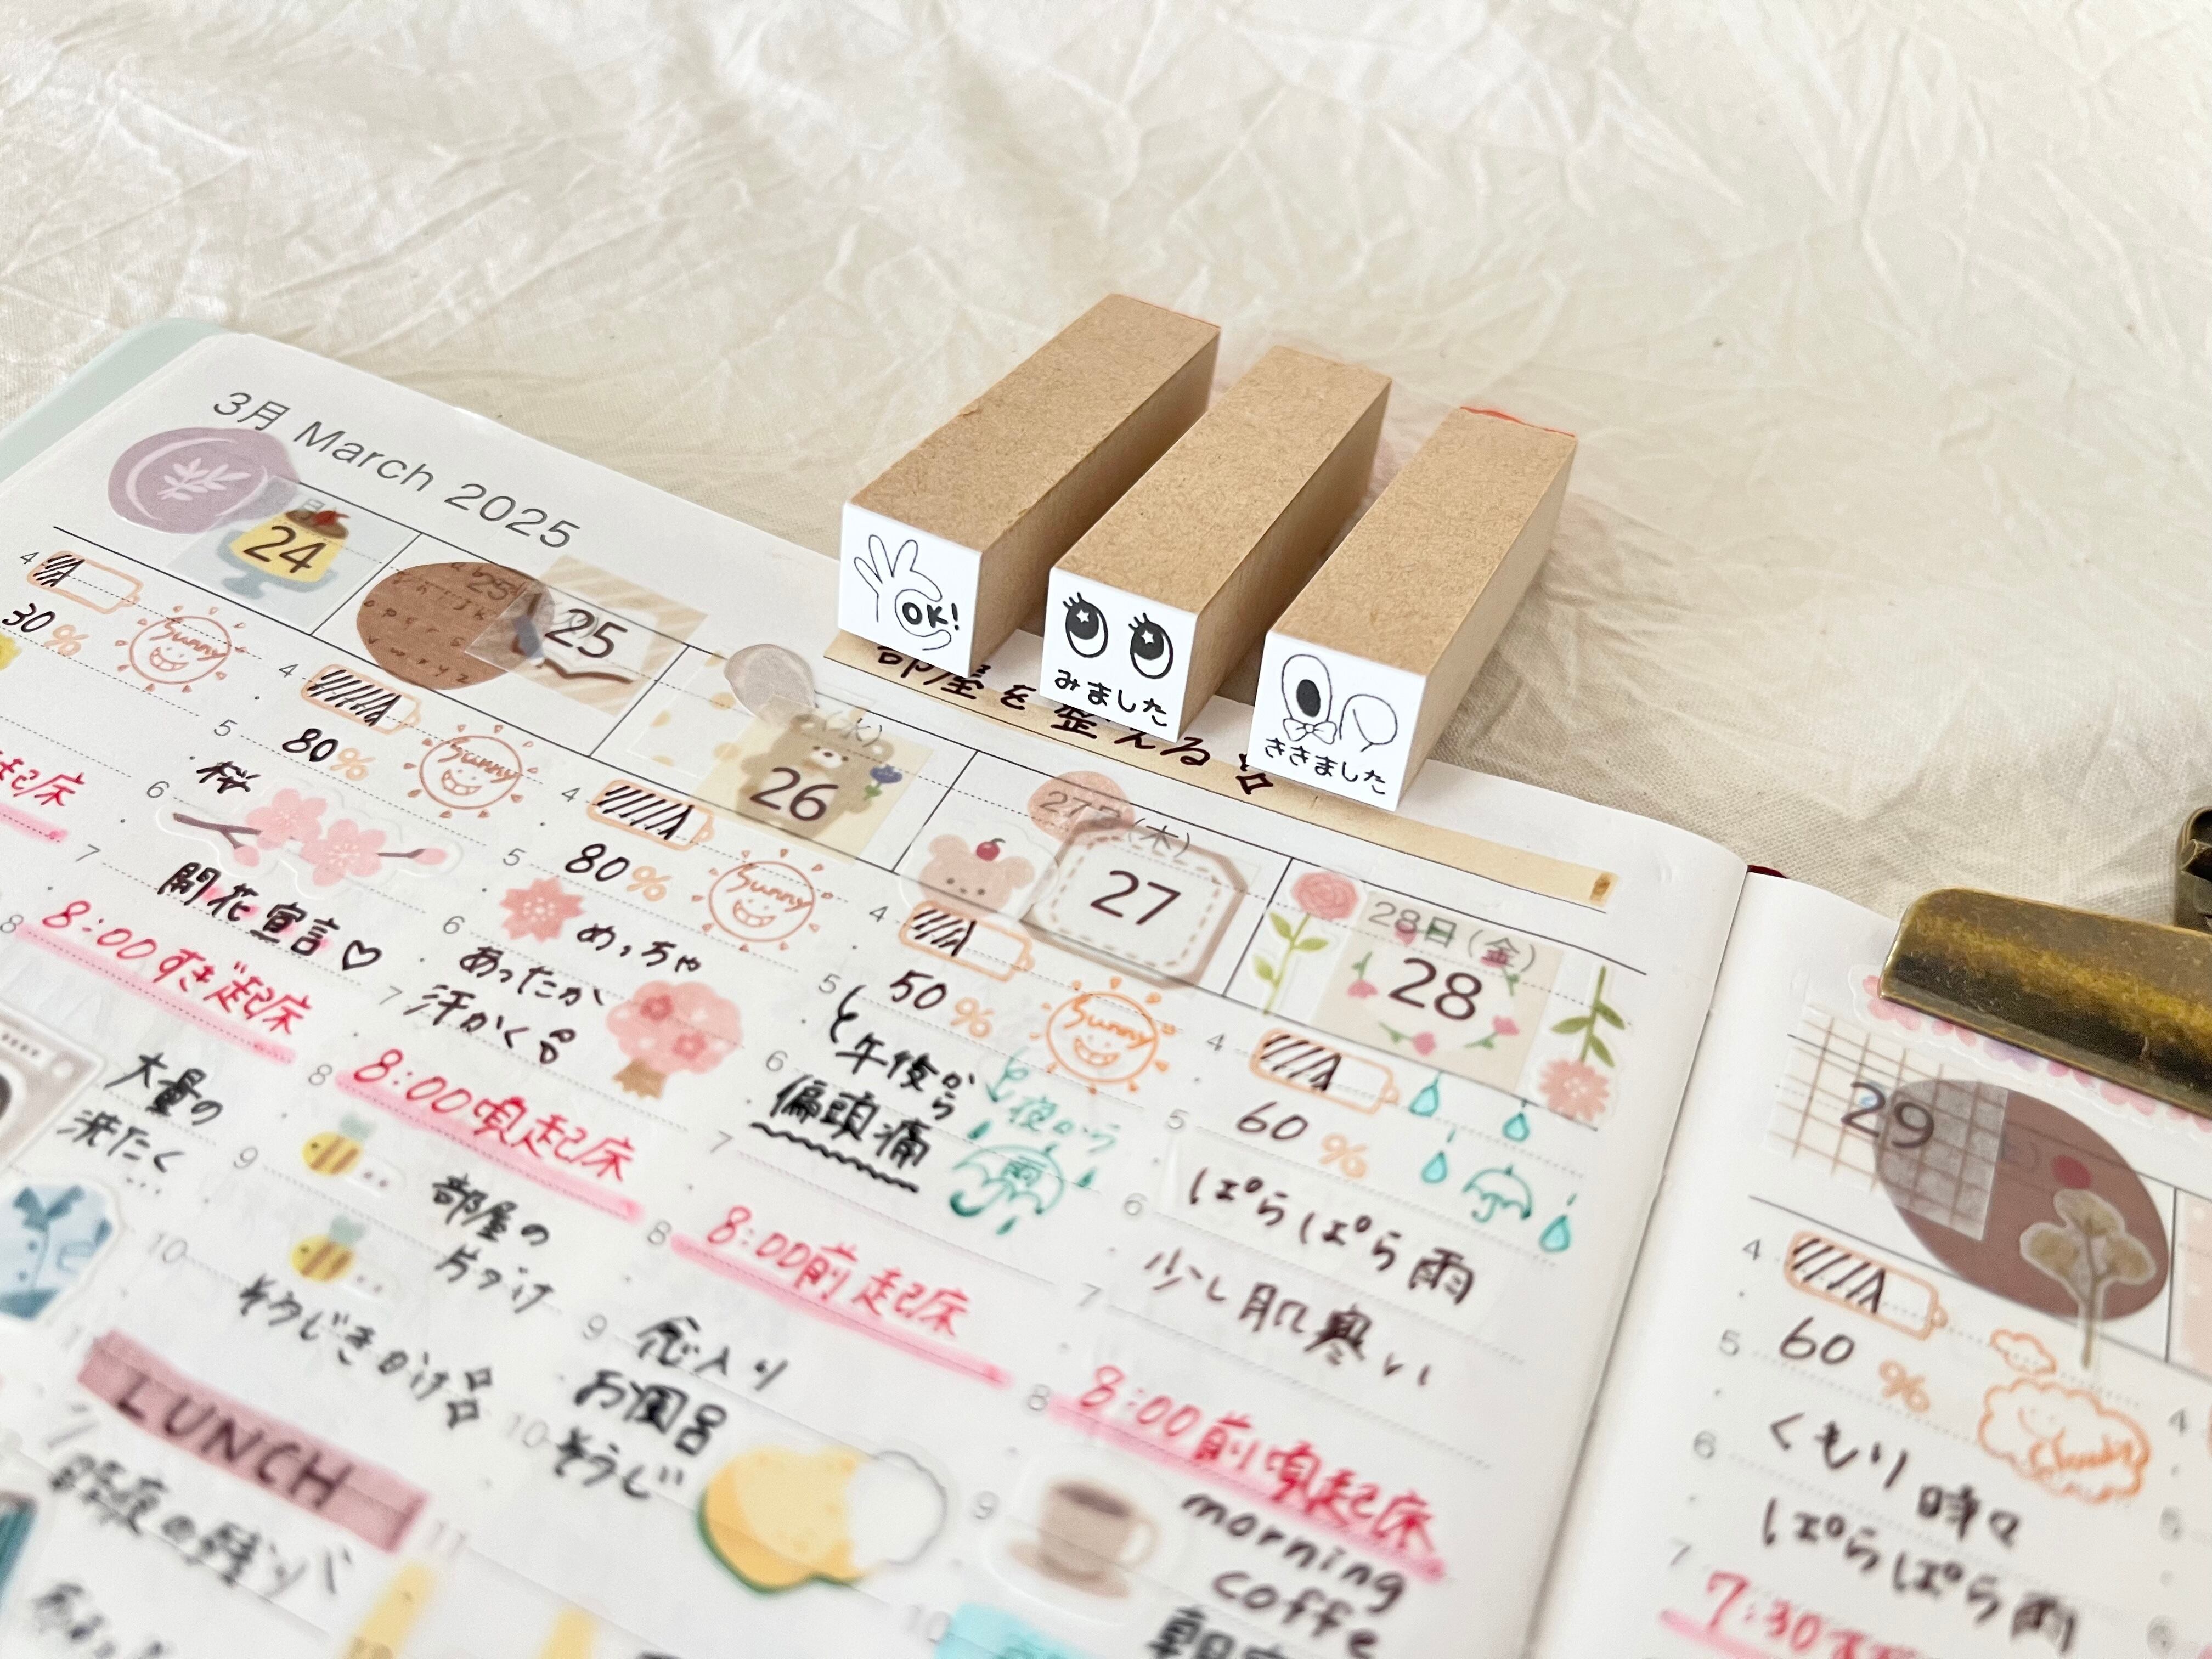 3月 March 2025
OK!
みました
ききました
部屋を整える
24
30%
Sunny
起床
4
25
80%
Sunny
5
桜
6
開花宣言♡
7
8:00すぎ起床
8
大量の
洗たく
9
10
LUNCH
昨夜の残り
(水)
26
4
80%
Sunny
5
めっちゃ
あったか
汗かく
6
7
8:00頃起床
8
部屋の
片づけ
そうじきかけ
9
10
11
27日(木)
27
4
50%
Sunny
5
と午後から
偏頭痛
と夜から
雨
6
7
8:00前起床
8
念入り
お風呂
そうじ
9
10
28日(金)
28
4
60%
5
ぱらぱら雨
6
少し肌寒い
7
8:00前頃起床
8
morning
coffe
9
10
29
4
60%
Cloudy
5
くもり時々
6
ぱらぱら雨
7
7:30